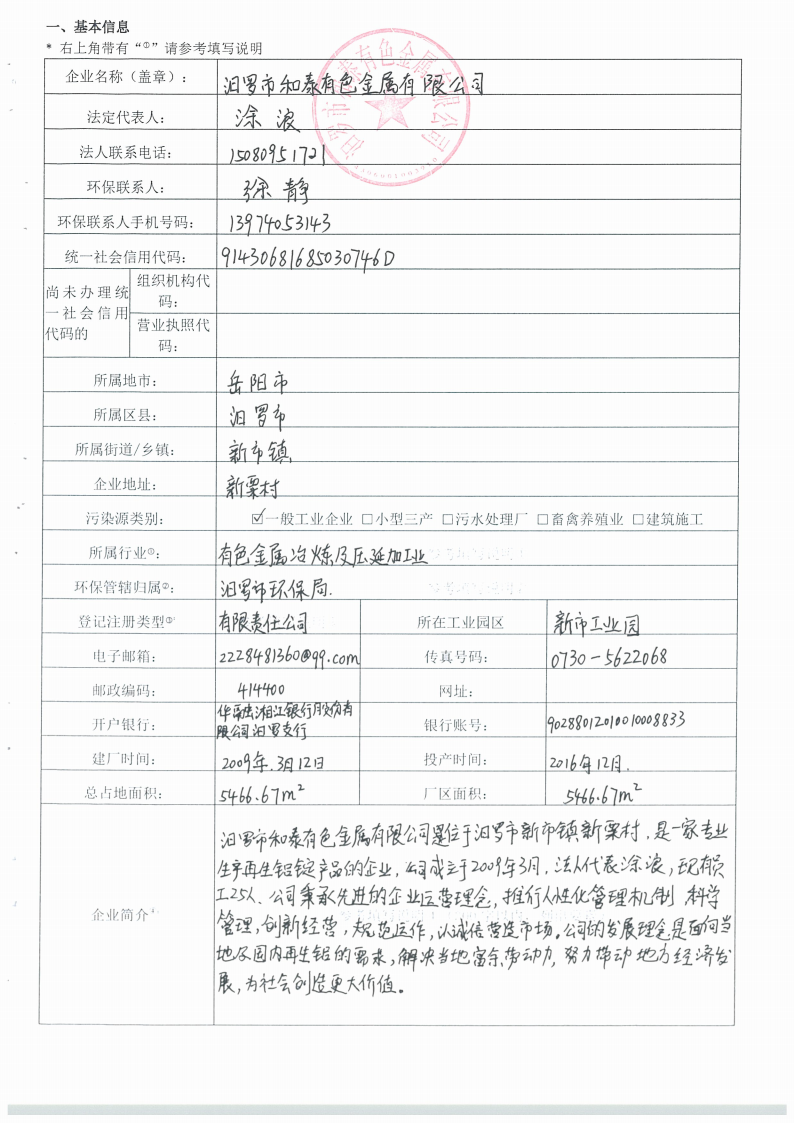 一、基本信息
* 右上角带有“①”请参考填写说明
企业名称（盖章）： 汨罗市和泰有色金属有限公司
法定代表人： 涂浪
法人联系电话： 15080951721
环保联系人： 徐静
环保联系人手机号码： 13974053143
统一社会信用代码： 91430681685030746D
尚未办理统一社会信用代码的
组织机构代码：
营业执照代码：
所属地市： 岳阳市
所属区县： 汨罗市
所属街道/乡镇： 新市镇
企业地址： 新栗村
污染源类别： ☑一般工业企业 □小型三产 □污水处理厂 □畜禽养殖业 □建筑施工
所属行业①： 有色金属冶炼及压延加工业
环保管辖归属②： 汨罗市环保局.
登记注册类型③ 有限责任公司 所在工业园区 新市工业园
电子邮箱： 2228481360@qq.com 传真号码： 0730-5622068
邮政编码： 414400 网址：
开户银行： 华融湘江银行股份有
限公司汨罗支行 银行账号： 90288012010010008833
建厂时间： 2009年.3月12日 投产时间： 2016年12月.
总占地面积： 5466.67m² 厂区面积： 5466.67m²
企业简介⁴
汨罗市和泰有色金属有限公司是位于汨罗市新市镇新栗村，是一家专业
生产再生铝锭产品的企业，公司成立于2009年3月，法人代表涂浪，现有员
工25人、公司秉承先进的企业运营理念，推行人性化管理机制 科学
管理，创新经营，规范运作，以诚信营造市场。公司的发展理念是面向当
地及国内再生铝的需求，解决当地富余劳动力，努力带动地方经济发
展，为社会创造更大价值。
汨罗市和泰有色金属有限公司